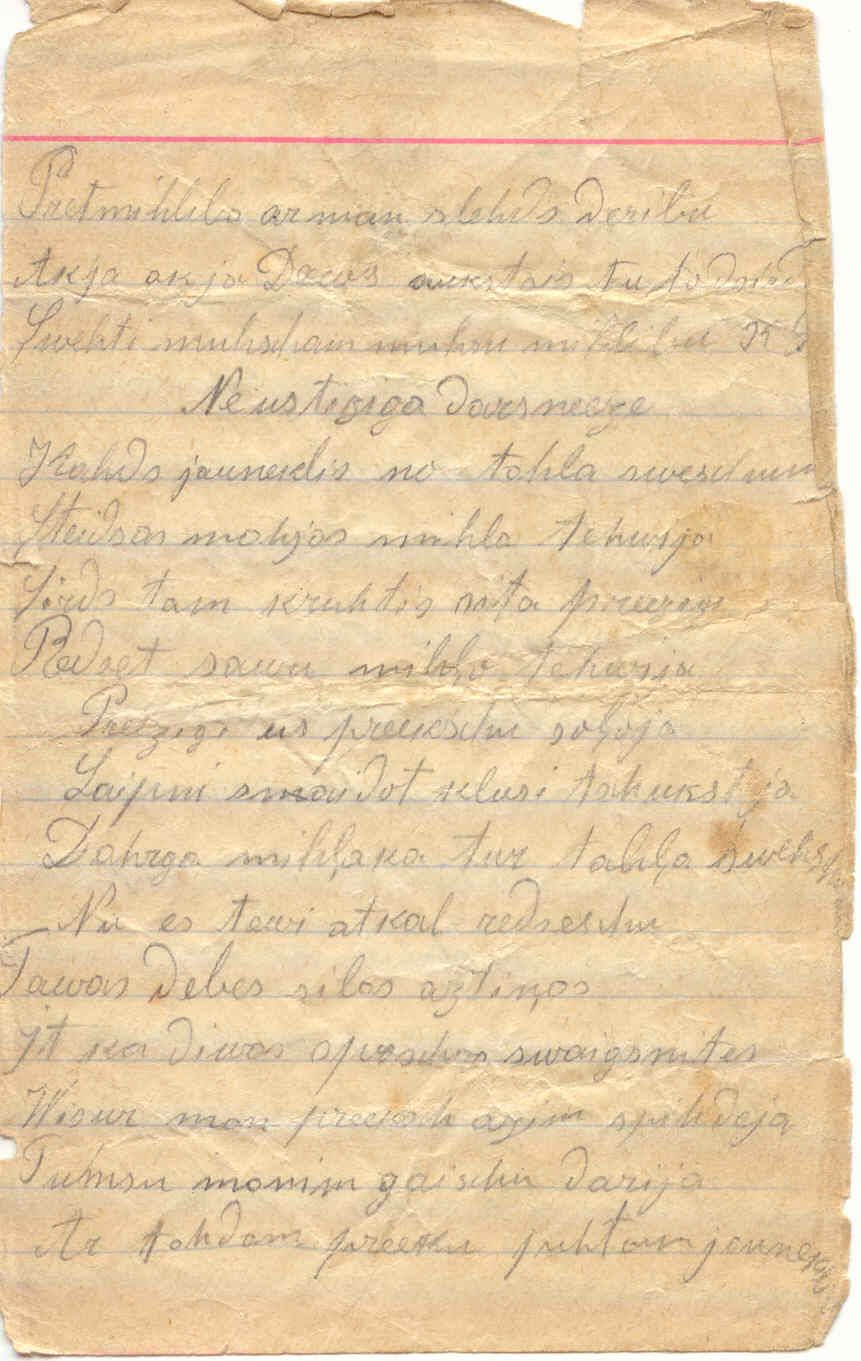 Pretmihlibo ar man slehds deribu
Akja akja Deews aukstais tu to dsird
Swehti muhscham muhsu mihlibu
Neustiziga darsneeze
Kahds jauneklis no tahla sweschum
Steidsas mahjas mihla tehwija
Sirds tam kruhtis sita preezigi
Redset sawu mihļo tehwija
Preezigi us preekschu soļoja
Laipni smaidot klusi tschukstja
Dahrga mihļaka tur tahļa
Nu es tewi atkal redseschu
Tawas debes zilas aztiņas
It ka diwas spuschas swaigsnites
Wisur man preeksch azim spihdeja
Tumsu manim gaischu darija
Ar tahdam preeku puhtam jauneklis